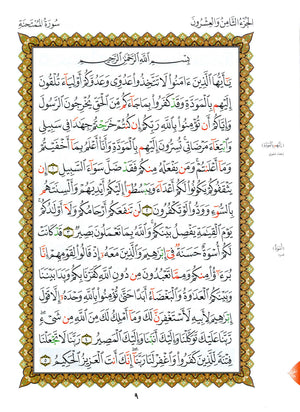 الجزء الثامن والعشرون
سورة الممتحنة
بِسْمِ اللَّهِ الرَّحْمَٰنِ الرَّحِيمِ
يَٰٓأَيُّهَا الَّذِينَ ءَامَنُوا لَا تَتَّخِذُوا عَدُوِّي وَعَدُوَّكُمْ أَوْلِيَآءَ تُلْقُونَ
إِلَيْهِم بِالْمَوَدَّةِ وَقَدْ كَفَرُوا بِمَا جَآءَكُم مِّنَ الْحَقِّ يُخْرِجُونَ الرَّسُولَ
وَإِيَّاكُمْ أَن تُؤْمِنُوا بِاللَّهِ رَبِّكُمْ إِن كُنتُمْ خَرَجْتُمْ جِهَٰدًا فِي سَبِيلِي
وَابْتِغَآءَ مَرْضَاتِي تُسِرُّونَ إِلَيْهِم بِالْمَوَدَّةِ وَأَنَا۠ أَعْلَمُ بِمَآ أَخْفَيْتُمْ
وَمَآ أَعْلَنتُمْ وَمَن يَفْعَلْهُ مِنكُمْ فَقَدْ ضَلَّ سَوَآءَ السَّبِيلِ ١ إِن
يَثْقَفُوكُمْ يَكُونُوا لَكُمْ أَعْدَآءً وَيَبْسُطُوٓا إِلَيْكُمْ أَيْدِيَهُمْ وَأَلْسِنَتَهُم
بِالسُّوٓءِ وَوَدُّوا لَوْ تَكْفُرُونَ ٢ لَن تَنفَعَكُمْ أَرْحَامُكُمْ وَلَآ أَوْلَٰدُكُمْ
يَوْمَ الْقِيَٰمَةِ يَفْصِلُ بَيْنَكُمْ وَاللَّهُ بِمَا تَعْمَلُونَ بَصِيرٌ ٣ قَدْ كَانَتْ
لَكُمْ أُسْوَةٌ حَسَنَةٌ فِيٓ إِبْرَٰهِيمَ وَالَّذِينَ مَعَهُۥٓ إِذْ قَالُوا لِقَوْمِهِمْ إِنَّا
بُرَءَٰٓؤُا مِنكُمْ وَمِمَّا تَعْبُدُونَ مِن دُونِ اللَّهِ كَفَرْنَا بِكُمْ وَبَدَا بَيْنَنَا
وَبَيْنَكُمُ الْعَدَٰوَةُ وَالْبَغْضَآءُ أَبَدًا حَتَّىٰ تُؤْمِنُوا بِاللَّهِ وَحْدَهُۥٓ إِلَّا قَوْلَ
إِبْرَٰهِيمَ لِأَبِيهِ لَأَسْتَغْفِرَنَّ لَكَ وَمَآ أَمْلِكُ لَكَ مِنَ اللَّهِ مِن شَيْءٍ
رَّبَّنَا عَلَيْكَ تَوَكَّلْنَا وَإِلَيْكَ أَنَبْنَا وَإِلَيْكَ الْمَصِيرُ ٤ رَبَّنَا لَا تَجْعَلْنَا
فِتْنَةً لِّلَّذِينَ كَفَرُوا وَاغْفِرْ لَنَا رَبَّنَآ إِنَّكَ أَنتَ الْعَزِيزُ الْحَكِيمُ ٥
٩